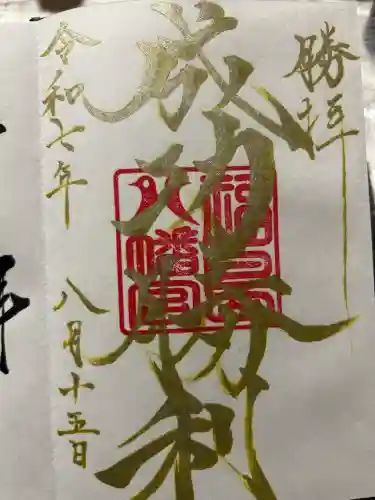 勝拝
成功勝利
八幡宮
令和七年 八月十五日